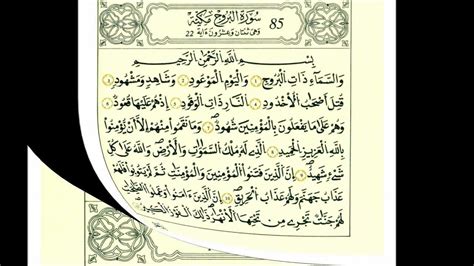 85
سورة البروج مكية
وهي ثنتان وعشرون ءاية 22
بسم الله الرحمن الرحيم
والسماء ذات البروج ١ واليوم الموعود ٢ وشاهد ومشهود ٣
قتل أصحب الأخدود ٤ النار ذات الوقود ٥ إذ هم عليها قعود ٦
وهم على ما يفعلون بالمؤمنين شهود ٧ وما نقموا منهم إلا أن يؤمنوا
بالله العزيز الحميد ٨ الذي له ملك السموات والأرض والله على كل
شيء شهيد ٩ إن الذين فتنوا المؤمنين والمؤمنت ثم لم يتوبوا فلهم
عذاب جهنم ولهم عذاب الحريق ١٠ إن الذين ءامنوا وعملوا الصلحت
لهم جنت تجري من تحتها الأنهر ذلك الفوز الكبير